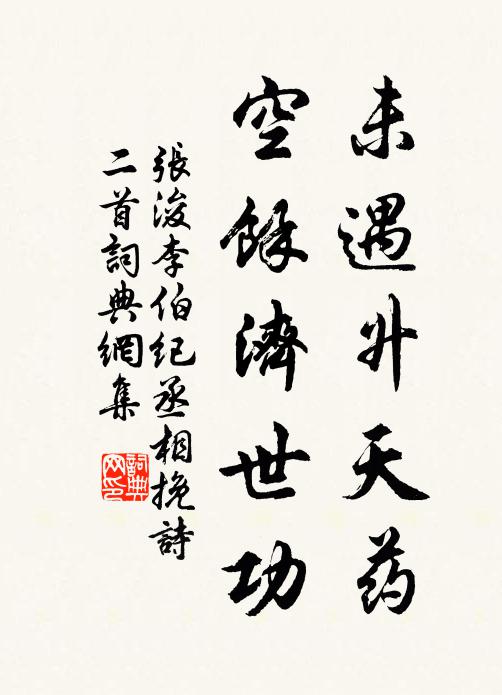 未遇升天药
空餘濟世功
張浚李伯纪丞相挽詩
二首詞典網集
詞典
网印